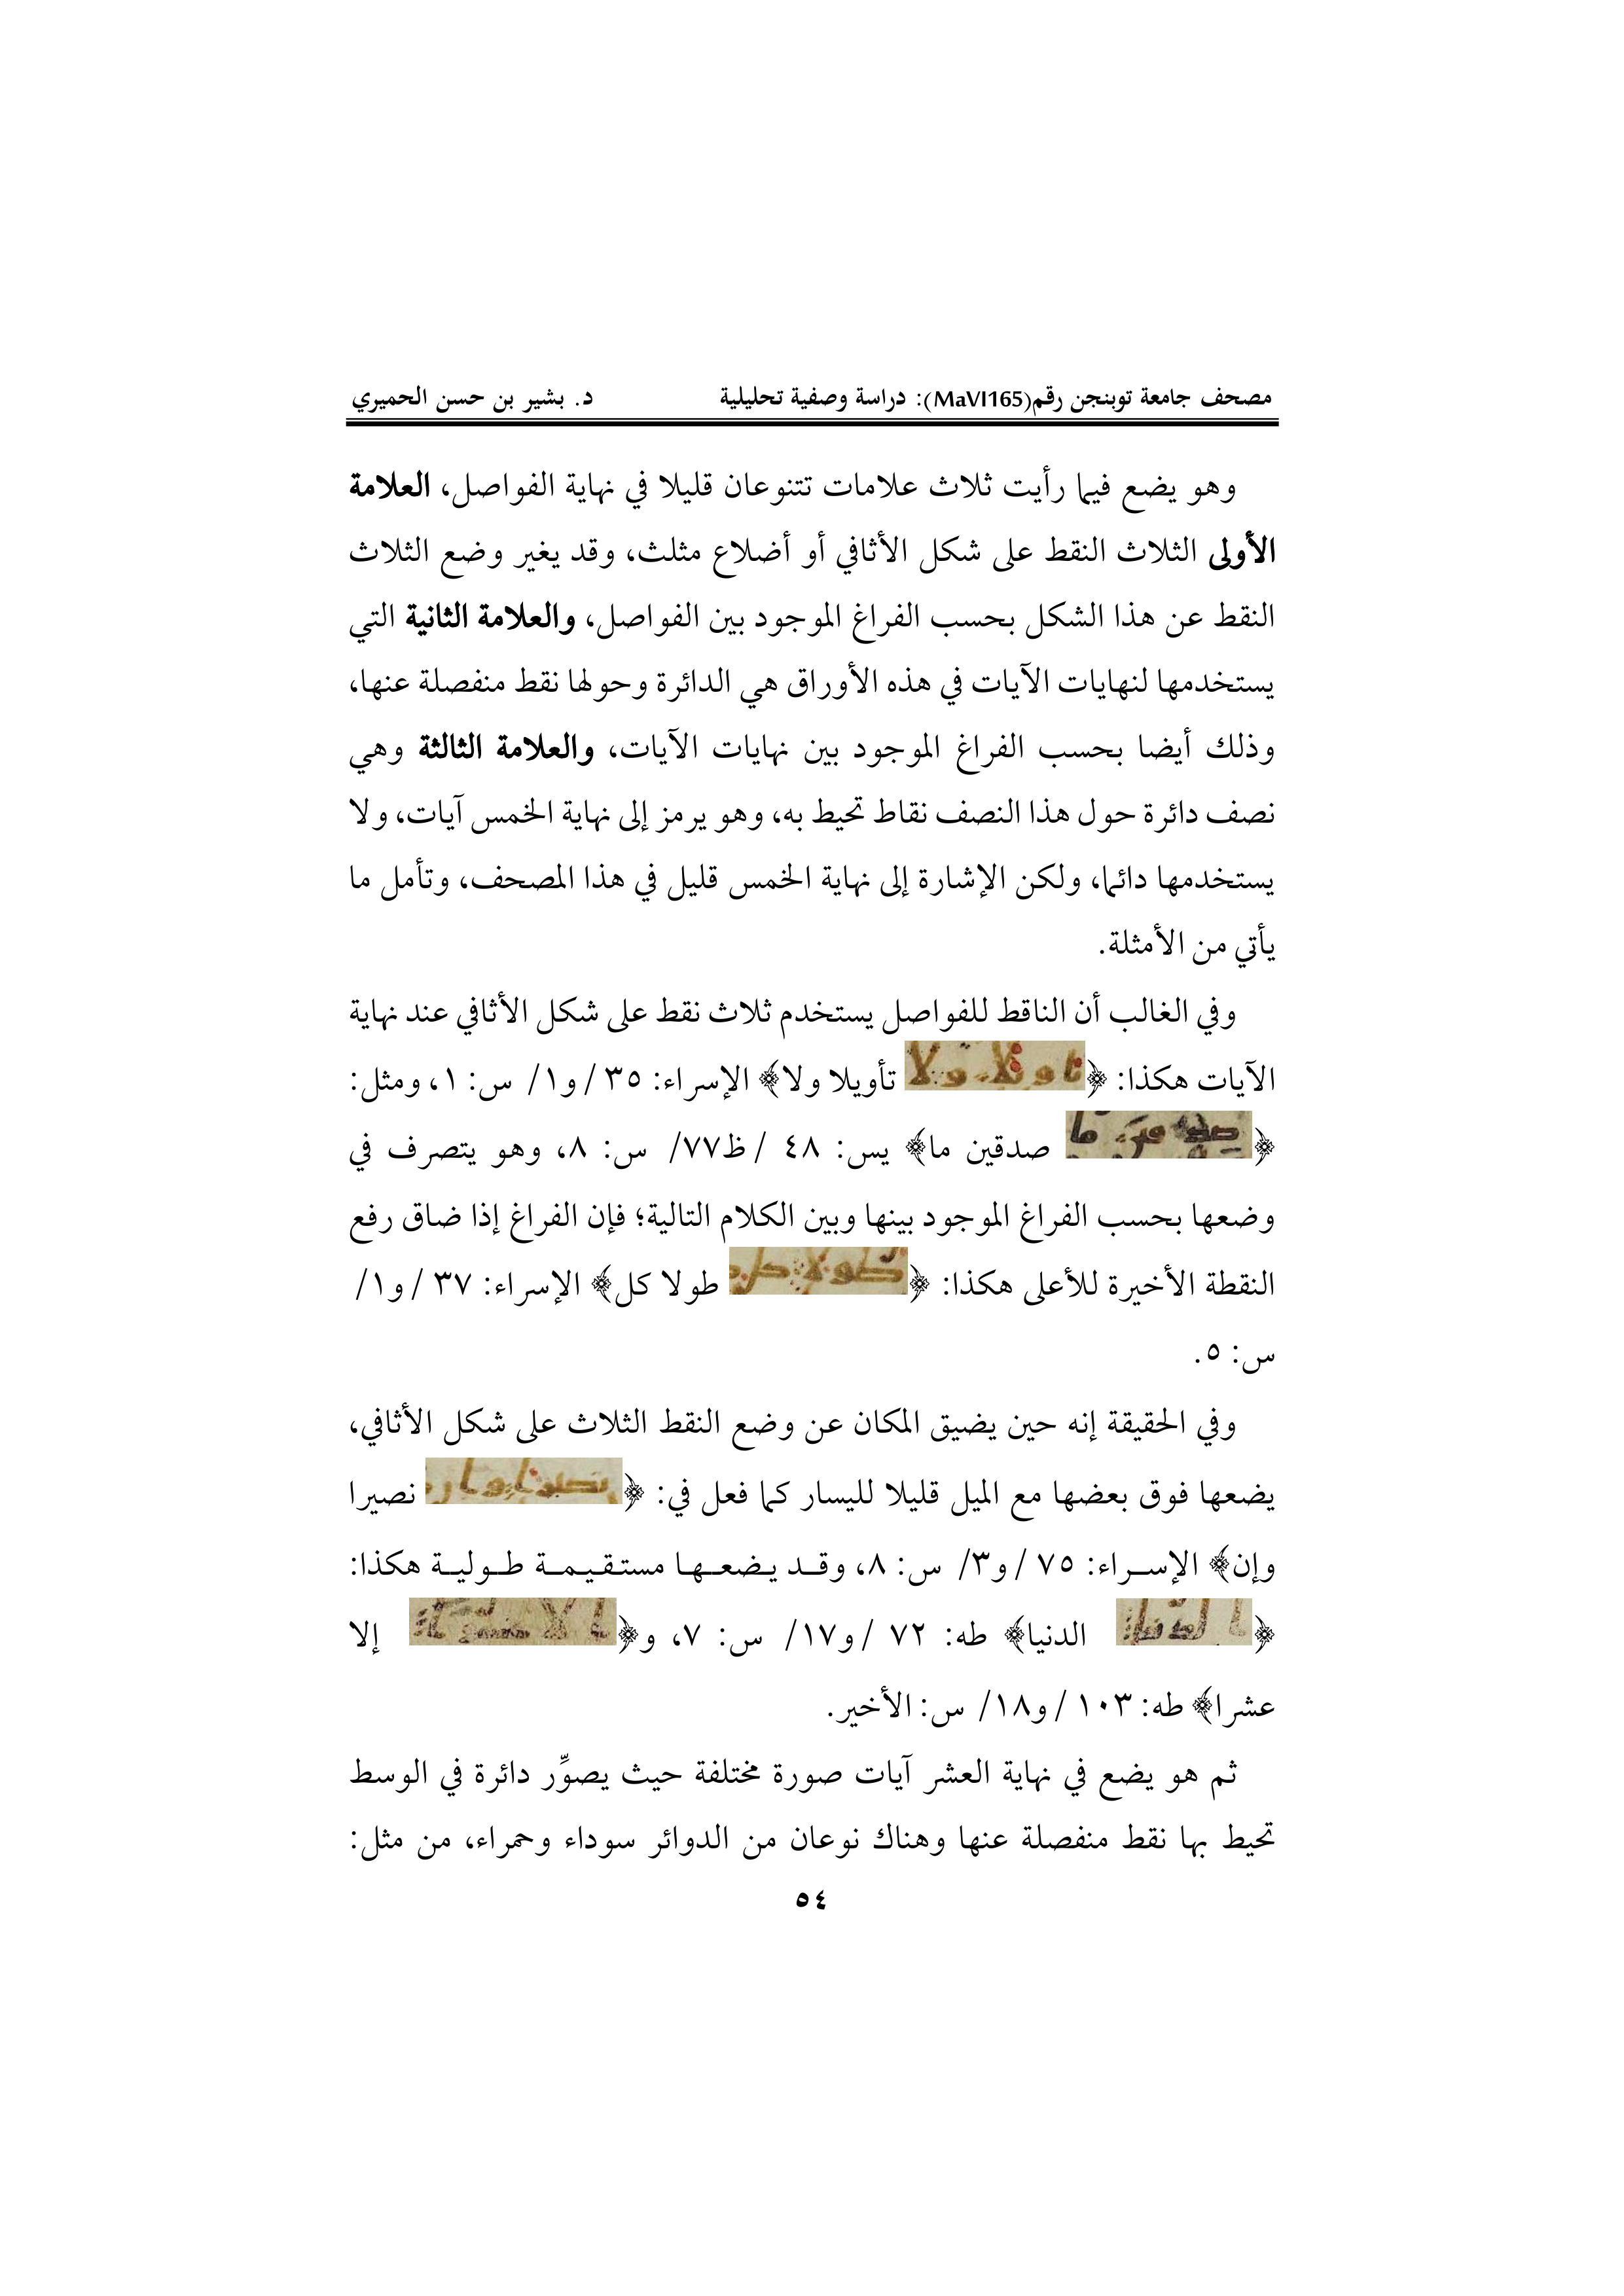 مصحف جامعة توبنجن رقم(MaVI165): دراسة وصفية تحليلية د. بشير بن حسن الحميري
وهو يضع فيما رأيت ثلاث علامات تتنوعان قليلا في نهاية الفواصل، العلامة
الأولى الثلاث النقط على شكل الأثافي أو أضلاع مثلث، وقد يغير وضع الثلاث
النقط عن هذا الشكل بحسب الفراغ الموجود بين الفواصل، والعلامة الثانية التي
يستخدمها لنهايات الآيات في هذه الأوراق هي الدائرة وحولها نقط منفصلة عنها،
وذلك أيضا بحسب الفراغ الموجود بين نهايات الآيات، والعلامة الثالثة وهي
نصف دائرة حول هذا النصف نقاط تحيط به، وهو يرمز إلى نهاية الخمس آيات، ولا
يستخدمها دائما، ولكن الإشارة إلى نهاية الخمس قليل في هذا المصحف، وتأمل ما
يأتي من الأمثلة.
وفي الغالب أن الناقط للفواصل يستخدم ثلاث نقط على شكل الأثافي عند نهاية
الآيات هكذا: ﴿ تأويلا ولا﴾ الإسراء: ٣٥ / و١/ س: ١، ومثل:
﴿ صدقين ما﴾ يس: ٤٨ / ظ٧٧/ س: ٨، وهو يتصرف في
وضعها بحسب الفراغ الموجود بينها وبين الكلام التالية؛ فإن الفراغ إذا ضاق رفع
النقطة الأخيرة للأعلى هكذا: ﴿ طولا كل﴾ الإسراء: ٣٧ / و١/
س: ٥.
وفي الحقيقة إنه حين يضيق المكان عن وضع النقط الثلاث على شكل الأثافي،
يضعها فوق بعضها مع الميل قليلا لليسار كما فعل في: ﴿ نصيرا
وإن﴾ الإسراء: ٧٥ / و٣/ س: ٨، وقد يضعها مستقيمة طولية هكذا:
﴿ الدنيا﴾ طه: ٧٢ / و١٧/ س: ٧، و﴿ إلا
عشرا﴾ طه: ١٠٣ / و١٨/ س: الأخير.
ثم هو يضع في نهاية العشر آيات صورة مختلفة حيث يصوِّر دائرة في الوسط
تحيط بها نقط منفصلة عنها وهناك نوعان من الدوائر سوداء وحمراء، من مثل:
٥٤